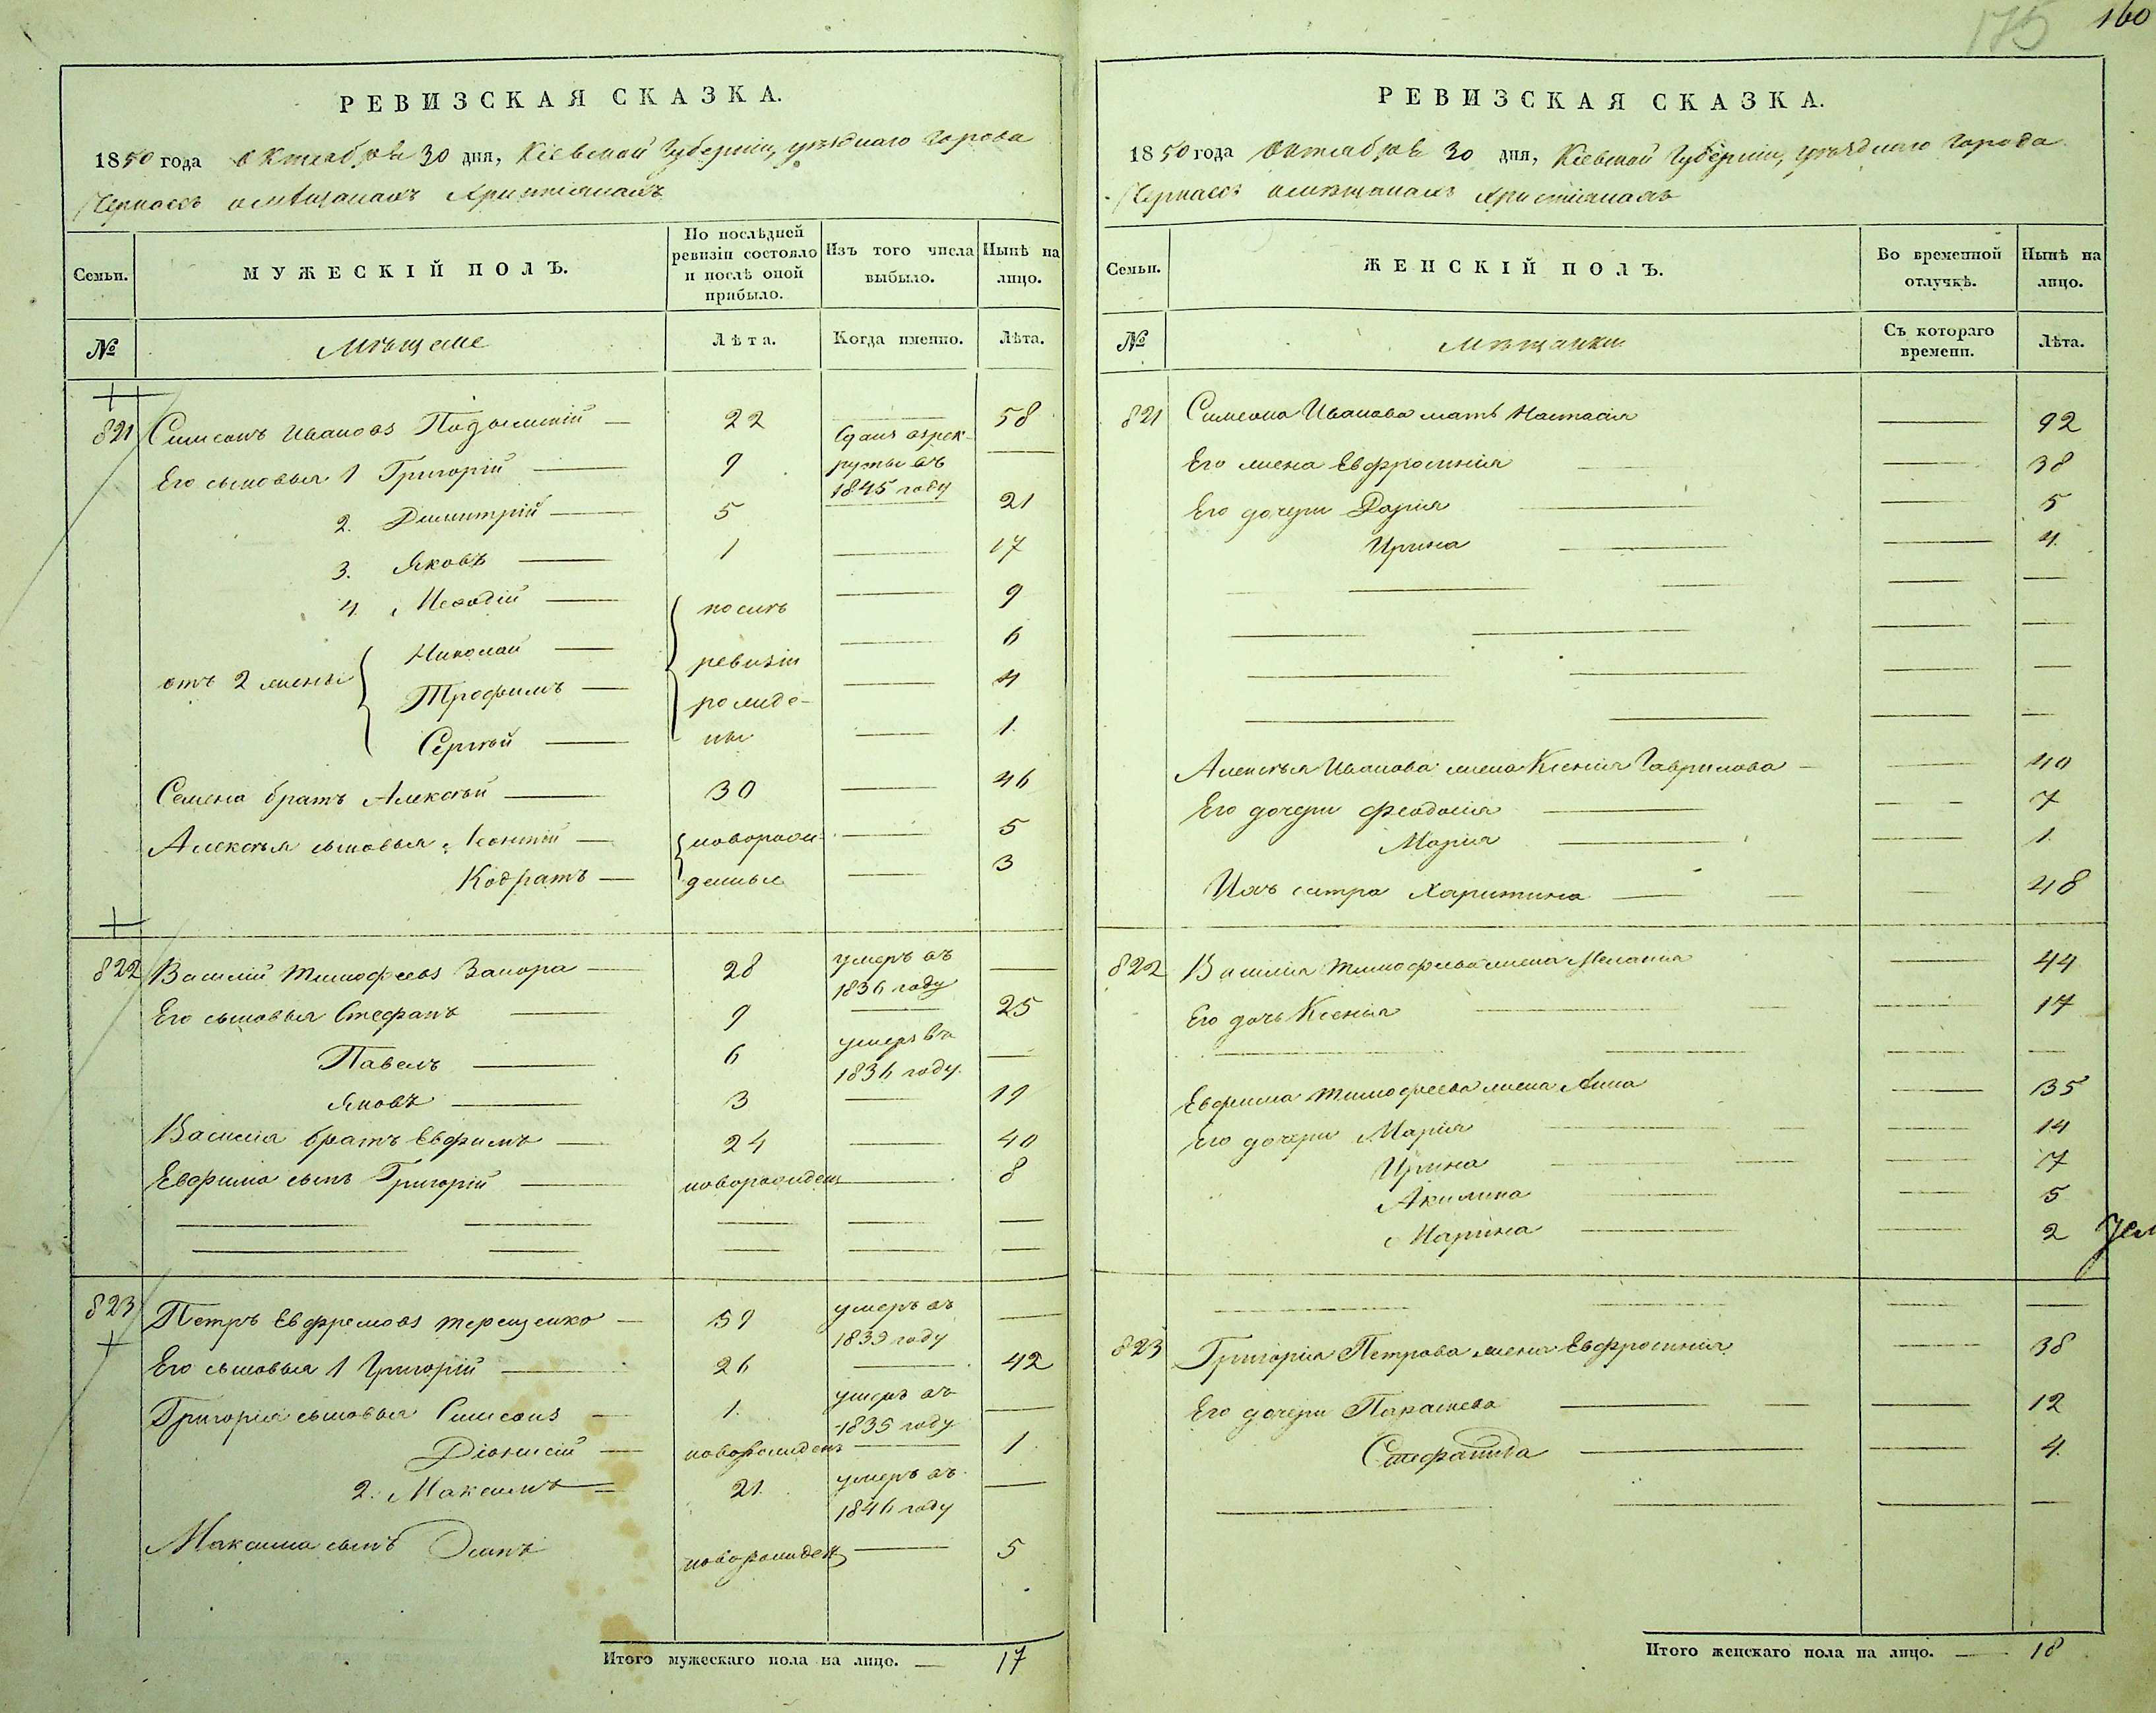 175 160
РЕВИЗСКАЯ СКАЗКА.
1850 года Октября 30 дня, Кіевской Губерніи, уѣзднаго города
Черкасъ о мѣщанахъ Христіанахъ
Семьи.
МУЖЕСКІЙ ПОЛЪ.
По послѣдней ревизіи состояло и послѣ оной прибыло.
Изъ того числа выбыло.
Нынѣ на лицо.
№
Мѣщане
Лѣта.
Когда именно.
Лѣта.
821 Симеонъ Ивановъ — 22 — 58
Его сыновья 1 Григорій — 9 Сданъ въ рекруты въ 1845 году —
2. Димитрій — 5 — 21
3. Яковъ — 1 — 17
4. Меѳодій — послѣ — 9
отъ 2 жены Николай — ревизіи — 6
Трофимъ — рожде- — 4
Сергѣй — ны — 1.
Семена братъ Алексѣй — 30 — 46
Алексѣя сыновья Леонтій — новорож- — 5
Кодратъ — денные — 3
822 Василій Тимофеевъ Запора — 28 умеръ въ 1836 году —
Его сыновья Стефанъ — 9 — 25
Павелъ — 6 умеръ въ 1836 году. —
Яковъ — 3 — 19
Василія братъ Евфимъ — 24 — 40
Евфима сынъ Григорій — новорожден — 8
823 Петръ Евфремовъ Терещенко — 59 умеръ въ 1839 году —
Его сыновья 1 Григорій — 26 — 42
Григорія сыновья Симеонъ — 1. умеръ въ 1835 году —
Діонисій — новорожденъ — 1
2. Максимъ — 21. умеръ въ 1846 году —
Максима сынъ Осипъ новорожден — 5
Итого мужескаго пола на лицо. — 17
РЕВИЗСКАЯ СКАЗКА.
1850 года Октября 30 дня, Кіевской Губерніи, уѣзднаго Города
Черкасъ о мѣщанахъ Христіанахъ
Семьи.
ЖЕНСКІЙ ПОЛЪ.
Во временной отлучкѣ.
Нынѣ на лицо.
№
Мѣщанки
Съ котораго времени.
Лѣта.
821 Симеона Иванова мать Настасія — 92
Его жена Евфросинія — 38
Его дочери Дарія — 5
Ирина — 4.
Алексѣя Иванова жена Ксенія Гаврилова — 40
Его дочери Феодосія — 7
Марія — 1.
Ихъ сестра Харитина — 48
822 Василія Тимофеева жена Меланія — 44
Его дочь Ксенія — 17
Евфима Тимофеева жена Анна — 35
Его дочери Марія — 14
Ирина — 7
Акилина — 5
Марина — 2
823 Григорія Петрова жена Евфросинія — 38
Его дочери Параскева — 12
Стефанида — 4.
Итого женскаго пола на лицо. — 18